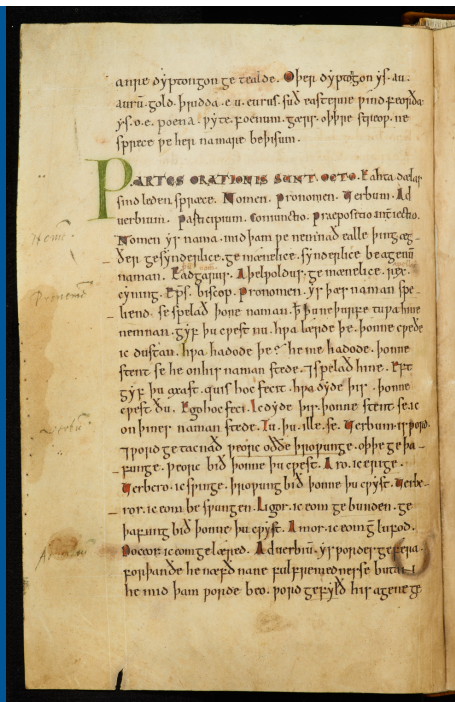 anre dyptongon getealde. Oþer dyptogon ys. au.
aurū. gold. þridda. e. u. eurus. suð easterne wind. feorða
ys. o. e. poena. wyte. foenum. gærs. oþþe streow. ne
sprece we her na mare be þisum.
PARTES ORATIONIS SUNT. OCTO. Eahta dælas
sind leden spræce. Nomen. Pronomen. Uerbum. Ad
uerbium. Participium. Coniunctio. Praepositio. Interiectio.
Nomen ys nama. mid þam we nemnað ealle þing æg-
ðer ge synderlice. ge mænelice. synderlice be agenū
naman. Eadgarus. Aþelwoldus. ge mænelice. rex.
cyning. Eps. biscop. Pronomen. ys þær naman spe-
liend. se spelað þone naman. þ þu ne þurfe tuwa hine
nemnan. gyf þu cwest nu. hwa lærde þe. þonne cweðe
ic dustan. hwa hadode þe? he me hadode. þonne
stent se he on his naman stede. ⁊ spelað hine. Eft
gyf þu axast. quis hoc fecit. hwa dyde þis. þonne
cwest ðu. Ego hoc feci. Ic dyde þis. þonne stent se ic
on þines naman stede. Tu. þu. ille. se. Uerbum is word.
⁊ word getacnað weorc oððe þrowunge. oþþe geþa-
funge. weorc bið þonne þu cwest. Aro. ic erige.
Uerbero. ic swinge. þrowung bið þonne þu cwyst. Uerbe-
ror. ic eom beswungen. Ligor. ic eom gebunden. ge
þafung bið þonne þu cwyst. Amor. ic eom gelufod.
Doceor. ic eom gelæred. Aduerbiū. ys wordes gefera.
forþan ðe he næfð nane fulfremednesse buton
he mid þam worde beo. word gefylð his agene ge